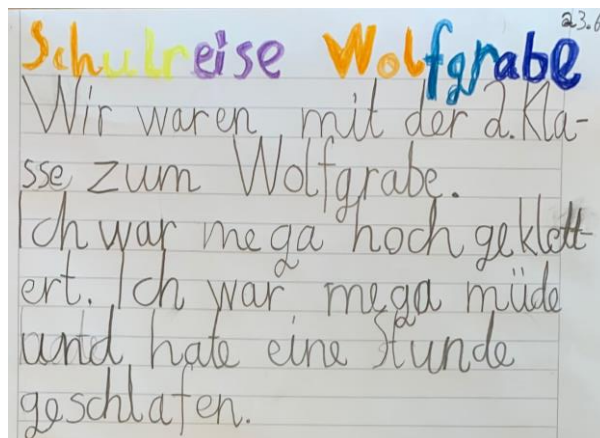 23.6
Schulreise Wolfgrabe
Wir waren mit der 2.Kla-
sse zum Wolfgrabe.
Ich war mega hoch geklett-
ert. Ich war mega müde
und hate eine Stunde
geschlafen.